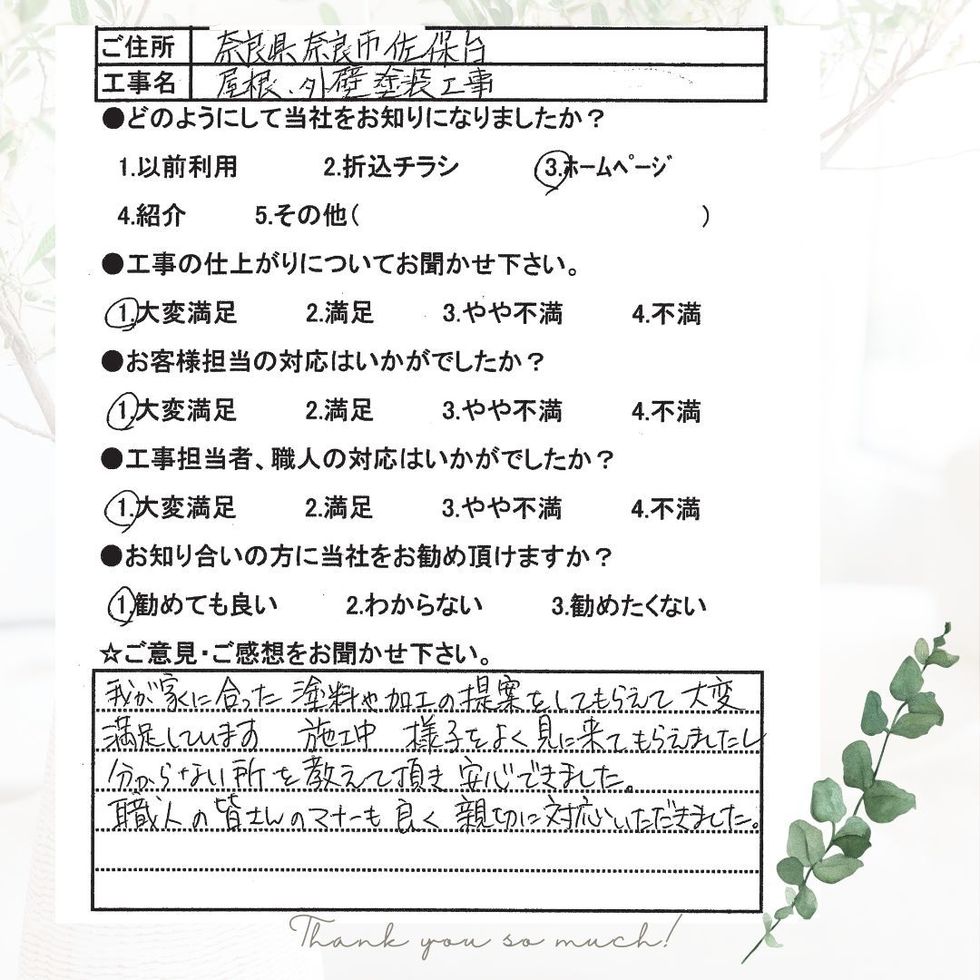 ご住所 奈良県奈良市佐保台
工事名 屋根、外壁塗装工事
●どのようにして当社をお知りになりましたか？
1.以前利用 2.折込チラシ 3.ホームページ
4.紹介 5.その他( )
●工事の仕上がりについてお聞かせ下さい。
1.大変満足 2.満足 3.やや不満 4.不満
●お客様担当の対応はいかがでしたか？
1.大変満足 2.満足 3.やや不満 4.不満
●工事担当者、職人の対応はいかがでしたか？
1.大変満足 2.満足 3.やや不満 4.不満
●お知り合いの方に当社をお勧め頂けますか？
1.勧めても良い 2.わからない 3.勧めたくない
☆ご意見・ご感想をお聞かせ下さい。
我が家に合った塗料や加工の提案をしてもらえて大変
満足しています 施工中 様子をよく見に来てもらえましたし
分からない所を教えて頂き安心できました。
職人の皆さんのマナーも良く親切に対応いただきました。
Thank you so much!